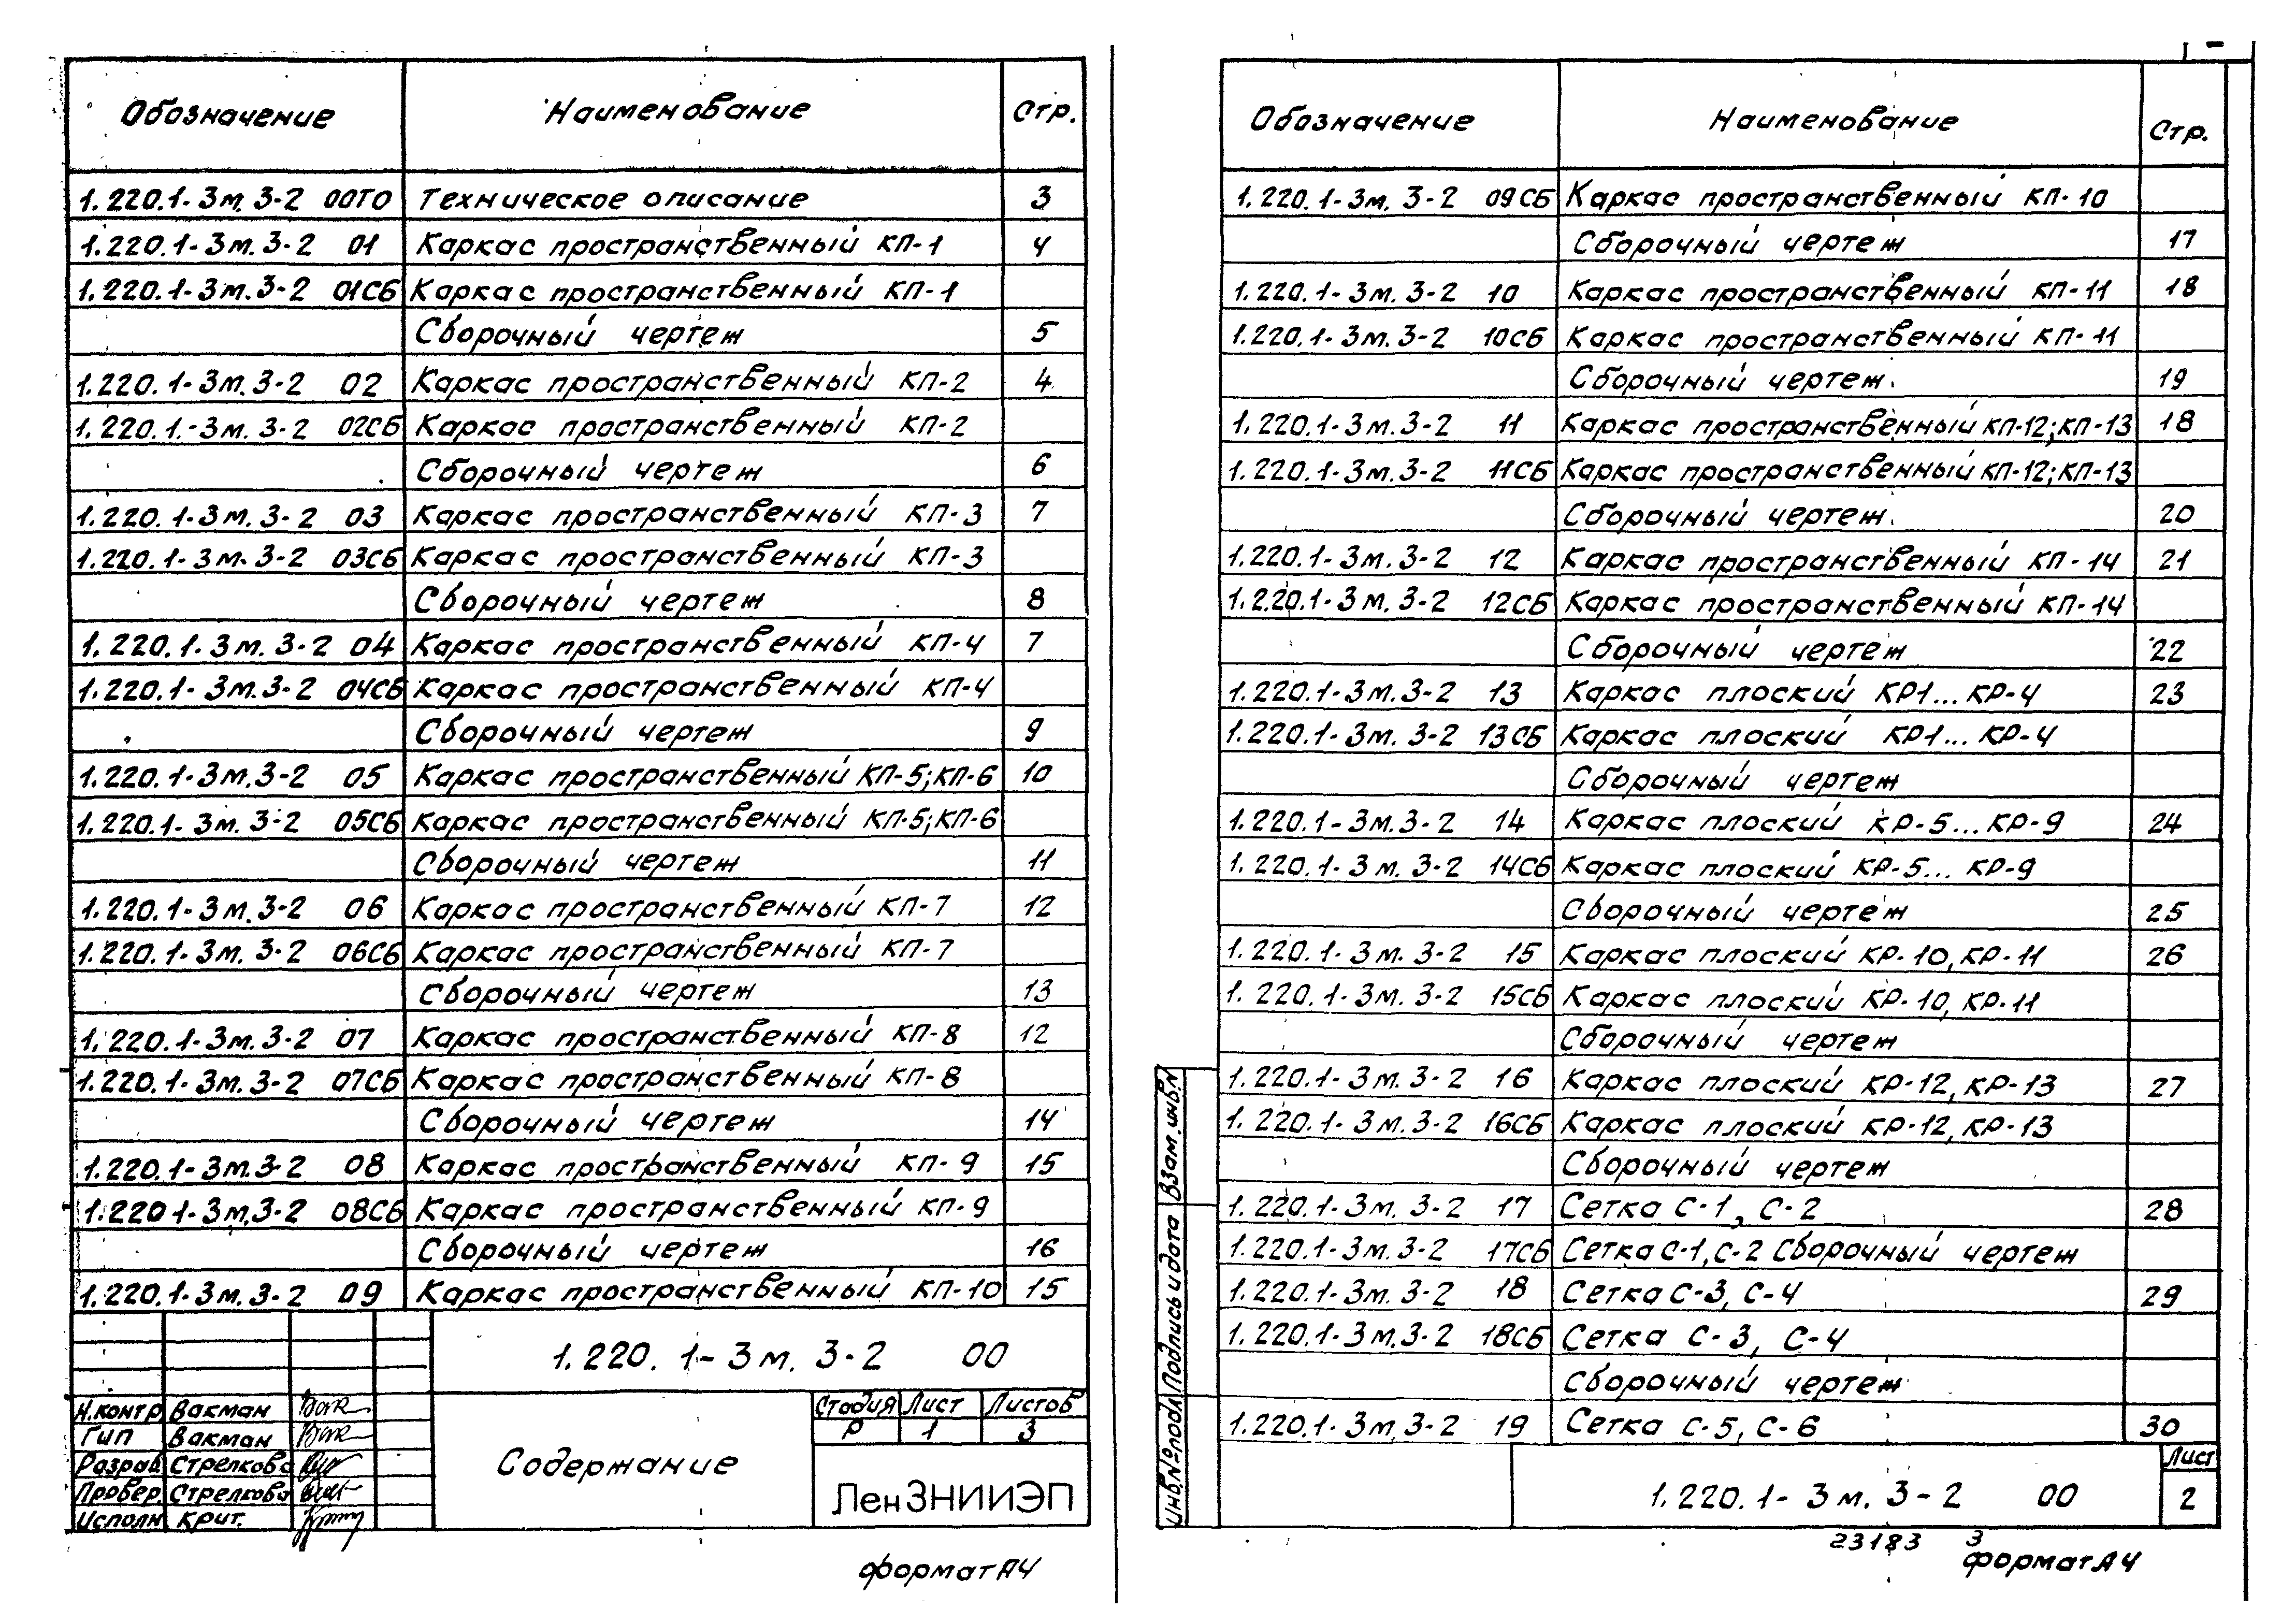 Обозначение Наименование Стр.
1.220.1-3м.3-2 00ТО Техническое описание 3
1.220.1-3м.3-2 01 Каркас пространственный КП-1 4
1.220.1-3м.3-2 01СБ Каркас пространственный КП-1
Сборочный чертеж 5
1.220.1-3м.3-2 02 Каркас пространственный КП-2 4
1.220.1.-3м.3-2 02СБ Каркас пространственный КП-2
Сборочный чертеж 6
1.220.1-3м.3-2 03 Каркас пространственный КП-3 7
1.220.1-3м.3-2 03СБ Каркас пространственный КП-3
Сборочный чертеж 8
1.220.1-3м.3-2 04 Каркас пространственный КП-4 7
1.220.1-3м.3-2 04СБ Каркас пространственный КП-4
Сборочный чертеж 9
1.220.1-3м.3-2 05 Каркас пространственный КП-5;КП-6 10
1.220.1-3м.3-2 05СБ Каркас пространственный КП-5;КП-6
Сборочный чертеж 11
1.220.1-3м.3-2 06 Каркас пространственный КП-7 12
1.220.1-3м.3-2 06СБ Каркас пространственный КП-7
Сборочный чертеж 13
1.220.1-3м.3-2 07 Каркас пространственный КП-8 12
1.220.1-3м.3-2 07СБ Каркас пространственный КП-8
Сборочный чертеж 14
1.220.1-3м.3-2 08 Каркас пространственный КП-9 15
1.220 1-3м.3-2 08СБ Каркас пространственный КП-9
Сборочный чертеж 16
1.220.1-3м.3-2 09 Каркас пространственный КП-10 15
1.220.1-3м.3-2 00
Н.контр Вакман
Гип Вакман
Разраб Стрелкова
Провер. Стрелкова
Исполн Крит.
Содержание
Стадия Лист Листов
Р 1 3
ЛенЗНИИЭП
формат А4
Обозначение Наименование Стр.
1.220.1-3м.3-2 09СБ Каркас пространственный КП-10
Сборочный чертеж 17
1.220.1-3м.3-2 10 Каркас пространственный КП-11 18
1.220.1-3м.3-2 10СБ Каркас пространственный КП-11
Сборочный чертеж. 19
1.220.1-3м.3-2 11 Каркас пространственный КП-12;КП-13 18
1.220.1-3м.3-2 11СБ Каркас пространственный КП-12;КП-13
Сборочный чертеж. 20
1.220.1-3м.3-2 12 Каркас пространственный КП-14 21
1.220.1-3м.3-2 12СБ Каркас пространственный КП-14
Сборочный чертеж 22
1.220.1-3м.3-2 13 Каркас плоский КР1...КР-4 23
1.220.1-3м.3-2 13СБ Каркас плоский КР1...КР-4
Сборочный чертеж
1.220.1-3м.3-2 14 Каркас плоский КР-5...КР-9 24
1.220.1-3м.3-2 14СБ Каркас плоский КР-5...КР-9
Сборочный чертеж 25
1.220.1-3м.3-2 15 Каркас плоский КР-10,КР-11 26
1.220.1-3м.3-2 15СБ Каркас плоский КР-10,КР-11
Сборочный чертеж
1.220.1-3м.3-2 16 Каркас плоский КР-12,КР-13 27
1.220.1-3м.3-2 16СБ Каркас плоский КР-12,КР-13
Сборочный чертеж
1.220.1-3м.3-2 17 Сетка С-1, С-2 28
1.220.1-3м.3-2 17СБ Сетка С-1,С-2 Сборочный чертеж
1.220.1-3м.3-2 18 Сетка С-3, С-4 29
1.220.1-3м.3-2 18СБ Сетка С-3, С-4
Сборочный чертеж
1.220.1-3м.3-2 19 Сетка С-5, С-6 30
Инв.№подл Подпись и дата Взам.инв.№
1.220.1-3м.3-2 00
Лист
2
23183 3
формат А4